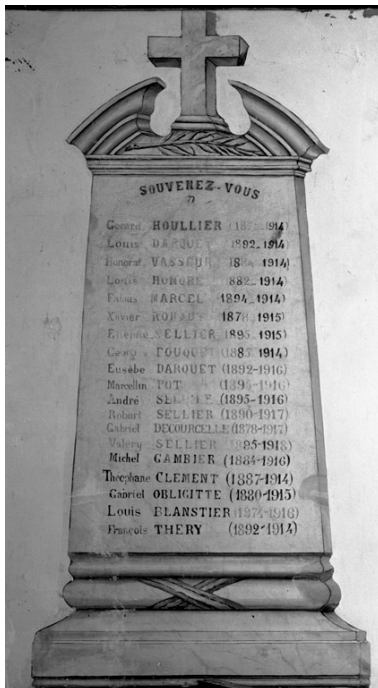 SOUVENEZ-VOUS
Gérard HOULLIER (1875-1914)
Louis DARQUET 1892-1914
Honorat VASSEUR 1914)
Louis HONORE 882-1914
MARCEL 1894-1914)
Xavier 1878 1915)
Etienne SELLIER 1895 1915)
FOUQUET (1885 1914)
Eusèbe DARQUET (1892-1916)
Marcellin POT (1896-1916)
André (1895-1916)
Robert SELLIER (1890-1917)
Gabriel DECOURCELLE (1878-1917)
Valéry SELLIER 1895-1918)
Michel GAMBIER (1884-1916)
Théophane CLEMENT (1887-1914)
Gabriel OBLIGITTE (1880-1915)
Louis BLANSTIER (1874-1916)
François THERY (1892-1914)